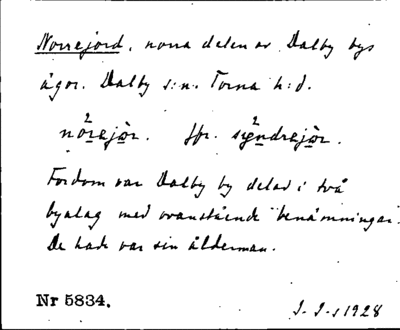 Norrejord, norra delen av Dalby bys
ägor. Dalby s:n. Torna h:d.
nö̀rejòr. Jfr. sýndrejòr.
Fordom var Dalby by delad i två
byalag med ovanstående benämningar.
De hade var sin ålderman.
Nr 5834.
1928